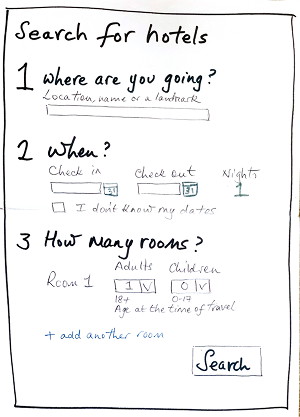 Search for hotels
1 Where are you going?
Location, name or a landmark
2 When?
Check in Check out Nights
31 31 1
I don't know my dates
3 How many rooms?
Adults Children
Room 1 1 V 0 V
18+ 0-17
Age at the time of travel
+ add another room
Search